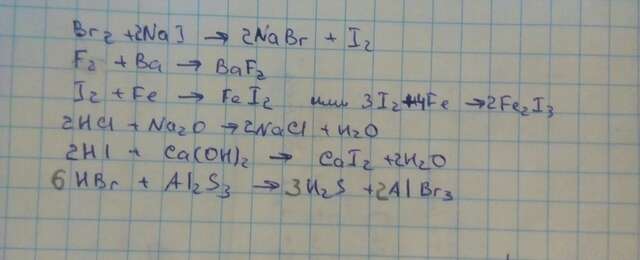 Br₂ + 2NaI → 2NaBr + I₂
F₂ + Ba → BaF₂
I₂ + Fe → FeI₂ или 3I₂ + 4Fe → 2Fe₂I₃
2HCl + Na₂O → 2NaCl + H₂O
2HI + Ca(OH)₂ → CaI₂ + 2H₂O
6HBr + Al₂S₃ → 3H₂S + 2AlBr₃